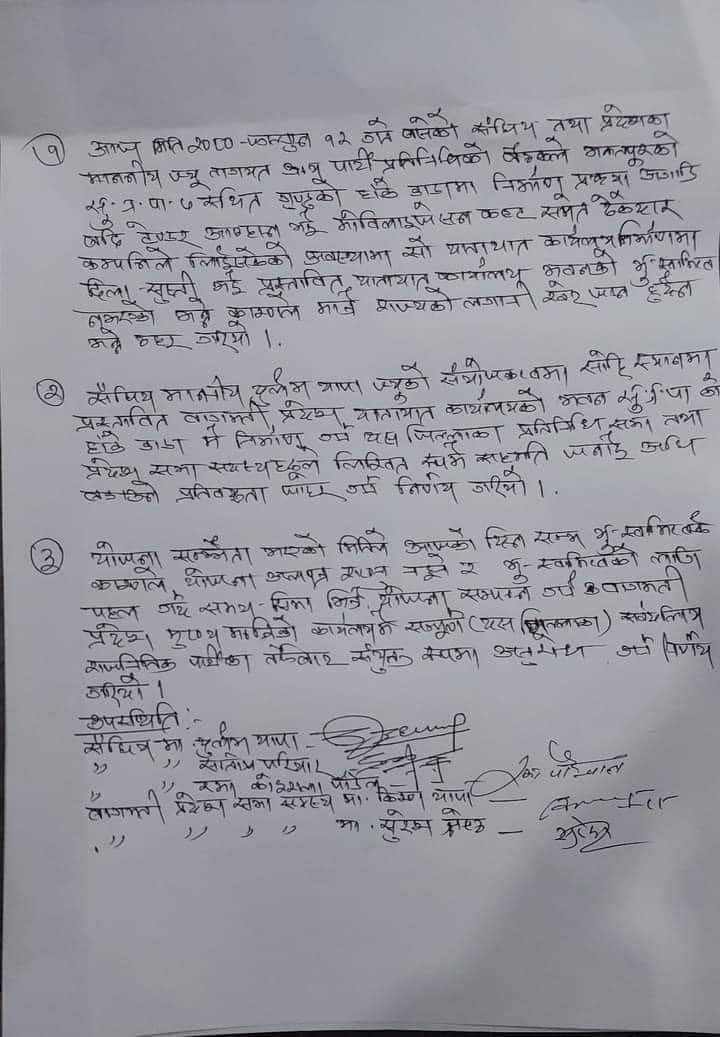 १) आज मिति २०८० फाल्गुन १२ गते बसेको संघिय तथा प्रदेशका
माननीय ज्यू लगायत प्रमुख पार्टी प्रतिनिधिको बैठकले भक्तपुरको
सु. न. पा. ७ स्थित गुण्डुको हाँडे डाडामा निर्माण प्रक्रिया अगाडि
बढि टेण्डर आव्हान भई मोविलाईजेसन फण्ड समेत ठेकेदार
कम्पनिले लिईसकेको अवस्थामा सो यातायात कार्यालय निर्माणमा
ढिला सुस्ती भई प्रस्तावित यातायात कार्यालय भवनको भु-स्वामित्व
नभएको भन्ने कारणले मात्रै राज्यको लगानी खेर जान हुँदैन
भन्ने ठहर गरियो ।
२) संघिय माननीय दुर्लभ थापा ज्यूको संयोजकत्वमा सोहि स्थानमा
प्रस्तावित वागमती प्रदेश यातायात कार्यालयको भवन सु. न. पा को
हाँडे डाडा मै निर्माण गर्न यस जिल्लाका प्रतिनिधि सभा तथा
प्रदेश सभा सदस्यहरूले लिखित रूपमै सहमति जनाई अघि
प्रतिवद्धता जाहेर गर्ने निर्णय गरियो ।
३) योजना सम्झौता भएको मितिले आजको दिन सम्म भु-स्वामित्वकै
कारणले योजना अलपत्र र भु-स्वामित्वको लागि
पहल गर्दै समय-सिमा भित्रै योजना सम्पन्न गर्न वागमती
प्रदेश मुख्य मन्त्रिको कार्यालयमै सम्पूर्ण (यस जिल्लाका) सर्वपक्षिय
राजनितिक पार्टीका तर्फबाट संयुक्त रूपमा अनुरोध गर्ने निर्णय
गरियो ।
उपस्थिति :-
संघिय मा. दुर्लभ थापा -
" " 
" " रमा कोइराला पौडेल -
वागमती प्रदेश सभा सदस्य मा. किरण थापा -
" " " " मा. सुरेश श्रेष्ठ -